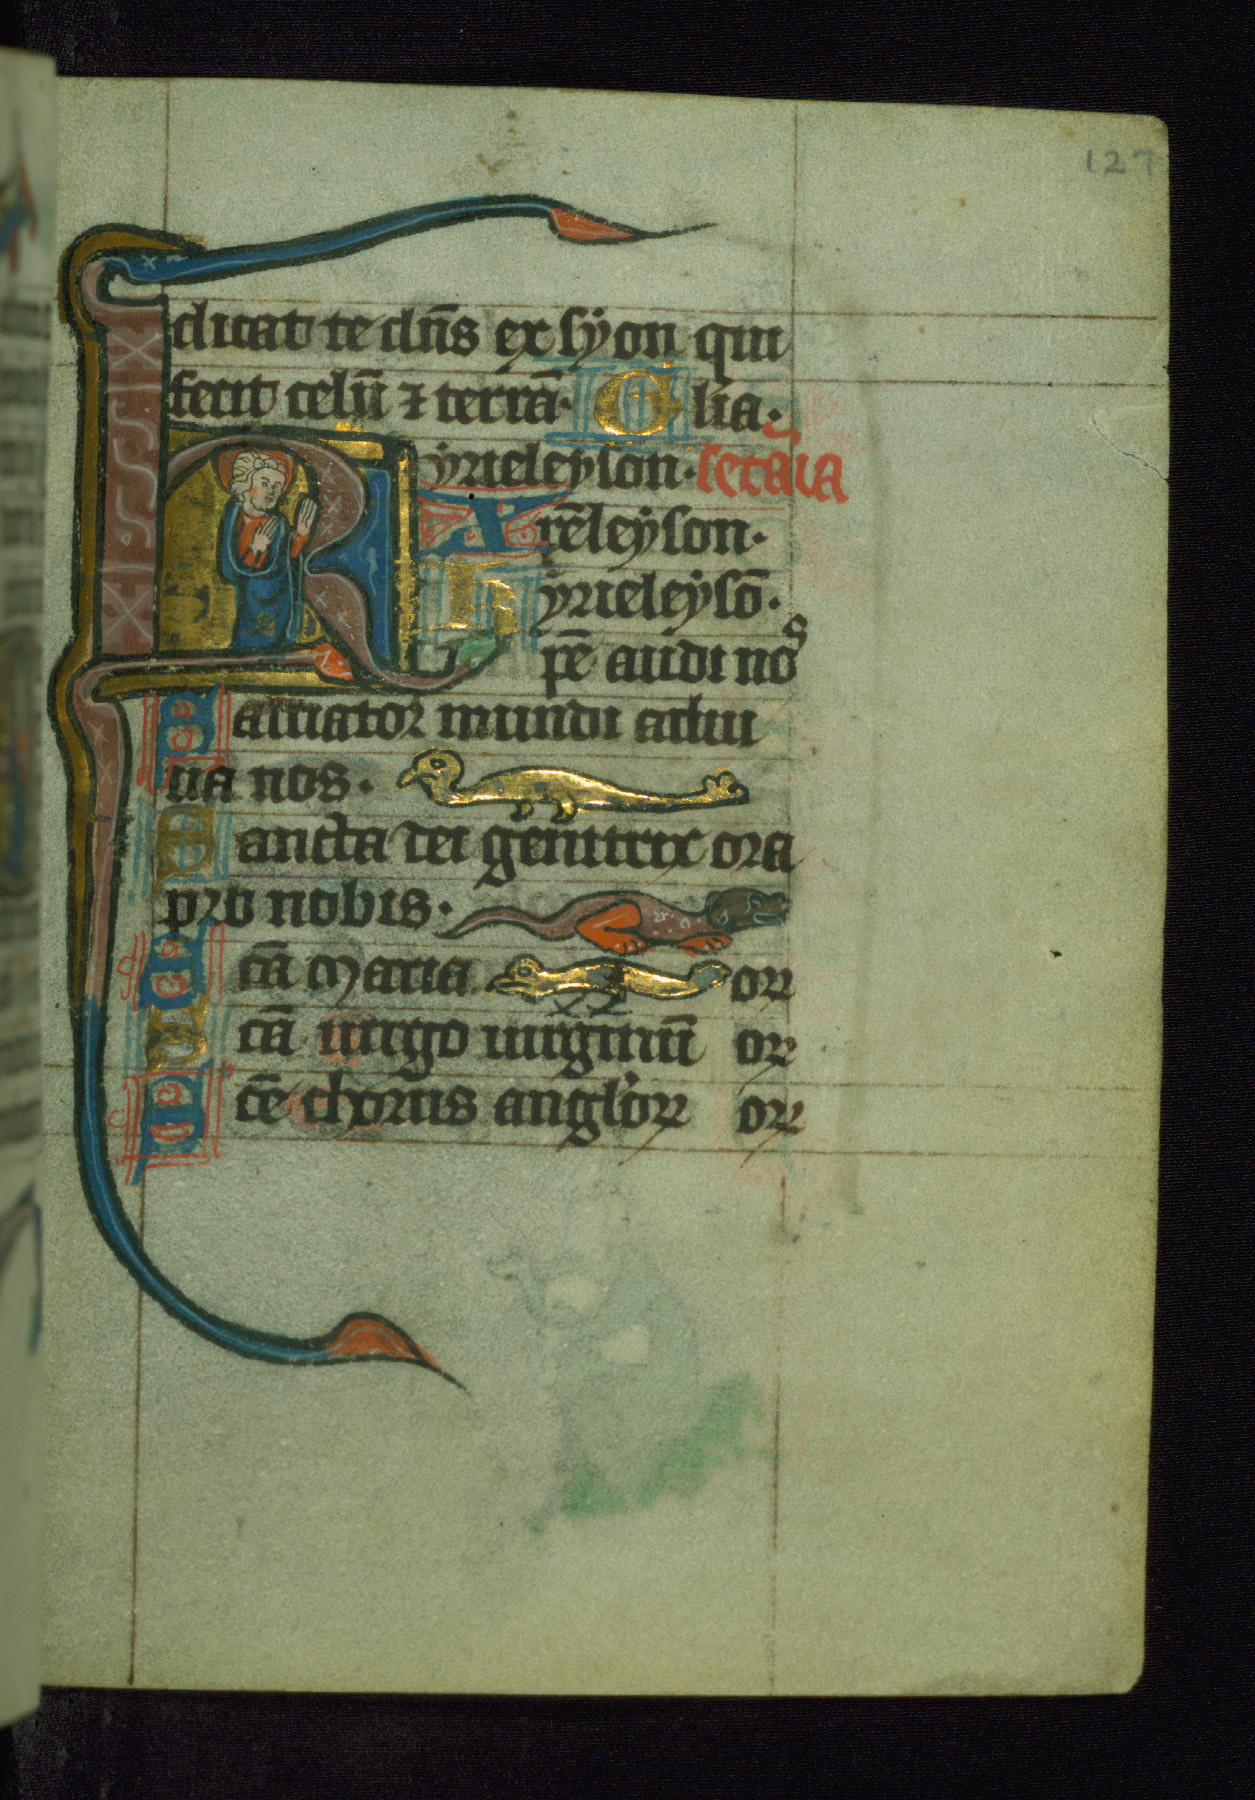 127
dicat te dn̄s ex sẏon qui
fecit celū ⁊ terrā. Glīa.
Kẏrieleẏson. letaīa
Xp̄eleẏson.
Kẏrieleẏsō.
Xpē audi nos
Saluator mundi adiu
ua nos.
Sancta dei genitrix ora
pro nobis.
Scā Maria or
Scā uirgo uirginū or
Scē chorus angl'or or